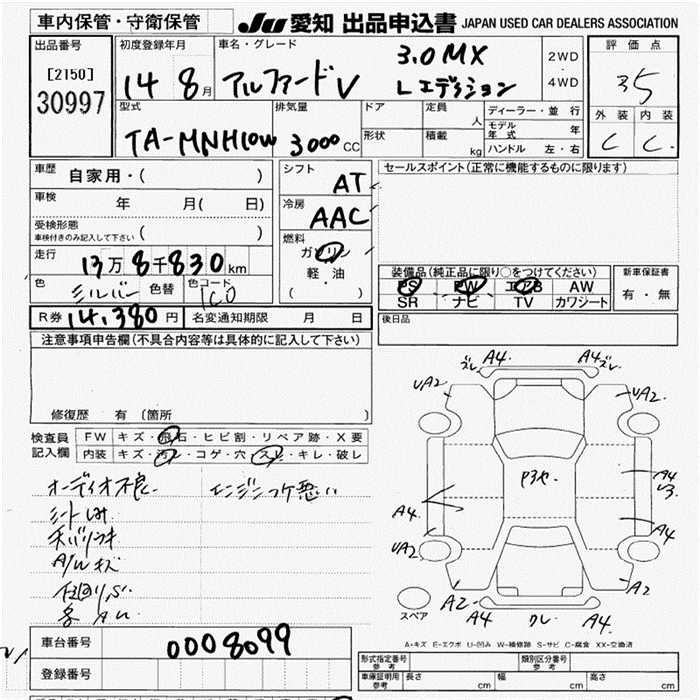 車内保管・守衛保管
JU 愛知 出品申込書 JAPAN USED CAR DEALERS ASSOCIATION
出品番号
[2150]
30997
初度登録年月
14 8月
車名・グレード
アルファードV
3.0 MX
Lエディション
2WD
4WD
評価点
3.5
外装 内装
C C
型式
TA-MNH10W
排気量
3000CC
ドア
形状
定員
人
積載
kg
ディーラー・並行
モデル年式 年
ハンドル 左・右
車歴
自家用・( )
車検
年 月( 日)
受検形態
車検付きのみ記入して下さい ( )
走行
13万8千830km
色
シルバー
色替
色コード
1C0
シフト
AT
冷房
AAC
燃料
ガソリン
軽油
( )
セールスポイント(正常に機能するものに限ります)
装備品(純正品に限り○をつけてください)
PS PW エアB AW
SR ナビ TV カワシート
新車保証書
有・無
R券 14,380円
名変通知期限 月 日
後日品
注意事項申告欄(不具合内容等は具体的に記入して下さい)
修復歴 有 〔箇所 〕
検査員
記入欄
FW キズ・飛石・ヒビ割・リペア跡・X要
内装 キズ・汚レ・コゲ・穴・スレ・キレ・破レ
オーディオ不良
エンジンフケ悪い
シートしみ
A/Wキズ
ズレ A4. A4 ズレ
UA2 UA2.
A4.
A4
A4
UA2
A2
A2
A4 A4.
スペア
A・キズ E・エクボ U・凹み W・補修跡 S・サビ C・腐食 XX・交換済
車台番号
0008099
登録番号
形式指定番号 参考
類別区分番号 参考
車庫証明用 参考
長さ cm
幅 cm
高さ cm